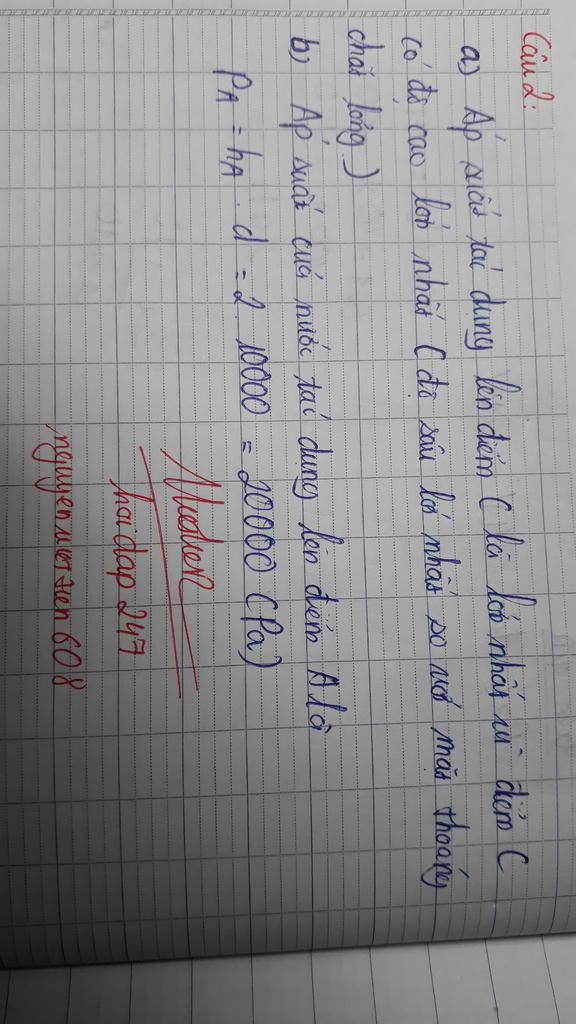 Câu 2:
a) Áp suất tác dụng lên điểm C là lớn nhất vì điểm C
có độ cao lớn nhất ( độ sâu lớn nhất so với mặt thoáng
chất lỏng )
b) Áp suất của nước tác dụng lên điểm A là
PA = hA . d = 2. 10000 = 20000 (Pa)
hoidap247
nguyenluetsen608